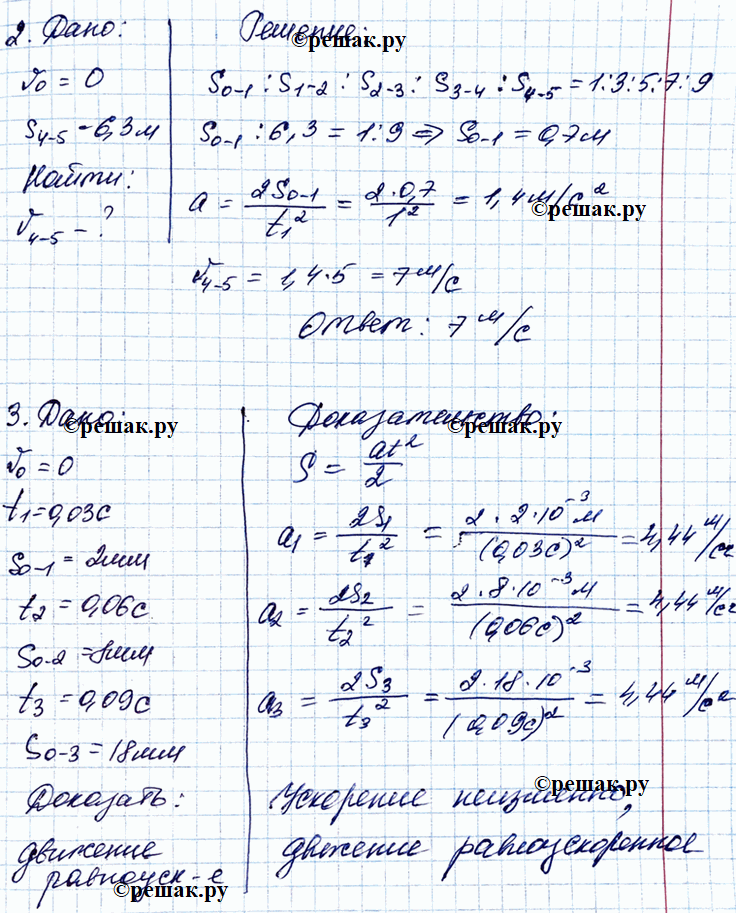 2. Дано:
v₀ = 0
S₄₋₅ - 6,3 м
Найти:
v₄₋₅ - ?
Решение:
©решак.ру
S₀₋₁ : S₁₋₂ : S₂₋₃ : S₃₋₄ : S₄₋₅ = 1:3:5:7:9
S₀₋₁ : 6,3 = 1:9 => S₀₋₁ = 0,7 м
a = 2S₀₋₁/t₁² = 2·0,7/1² = 1,4 м/с²
©решак.ру
v₄₋₅ = 1,4·5 = 7 м/с
Ответ: 7 м/с
3. Дано:
©решак.ру
v₀ = 0
t₁ = 0,03с
S₀₋₁ = 2мм
t₂ = 0,06с
S₀₋₂ = 8мм
t₃ = 0,09с
S₀₋₃ = 18мм
Доказать:
движение
равноуск-е
©решак.ру
Доказательство:
©решак.ру
S = at²/2
a₁ = 2S₁/t₁² = 2·2·10⁻³м/(0,03с)² = 4,44 м/с²
a₂ = 2S₂/t₂² = 2·8·10⁻³м/(0,06с)² = 4,44 м/с²
a₃ = 2S₃/t₃² = 2·18·10⁻³/(0,09с)² = 4,44 м/с²
©решак.ру
Ускорение неизменно,
движение равноускоренное